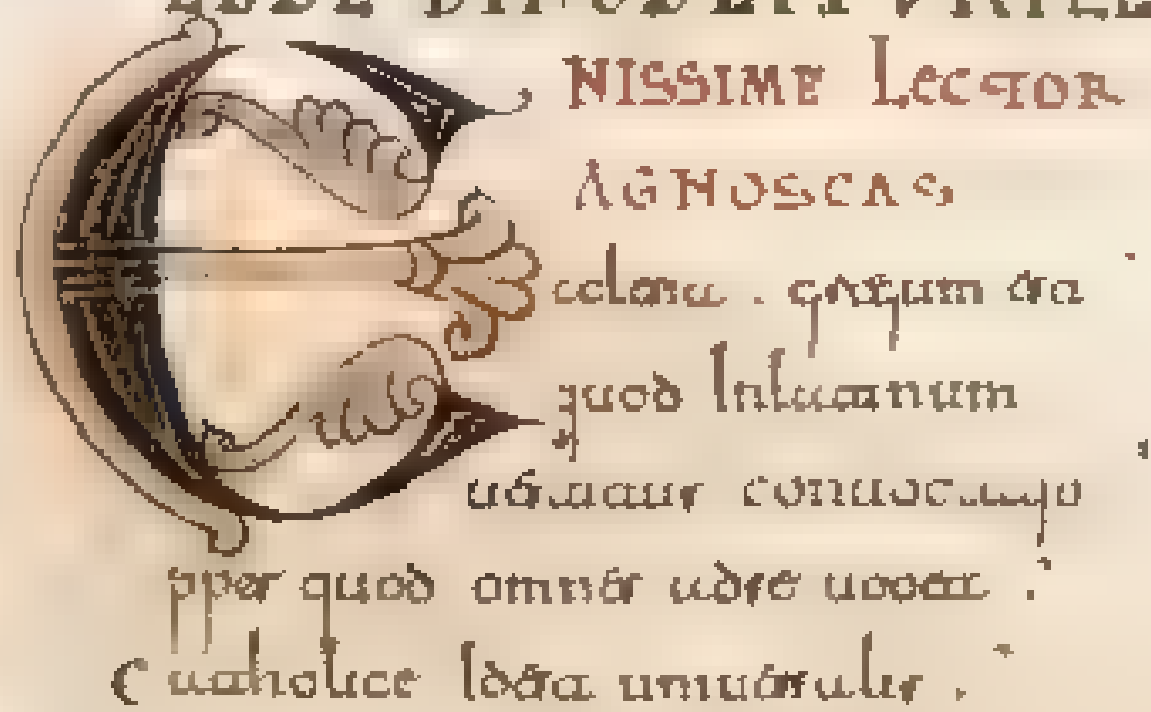 NISSIME LECTOR
AGNOSCAS
Ecclesia . grecum est
quod In latinum
uertitur conuocatio
ppter quod omnes ad se uocet .
Catholice Id est uniuersalis .